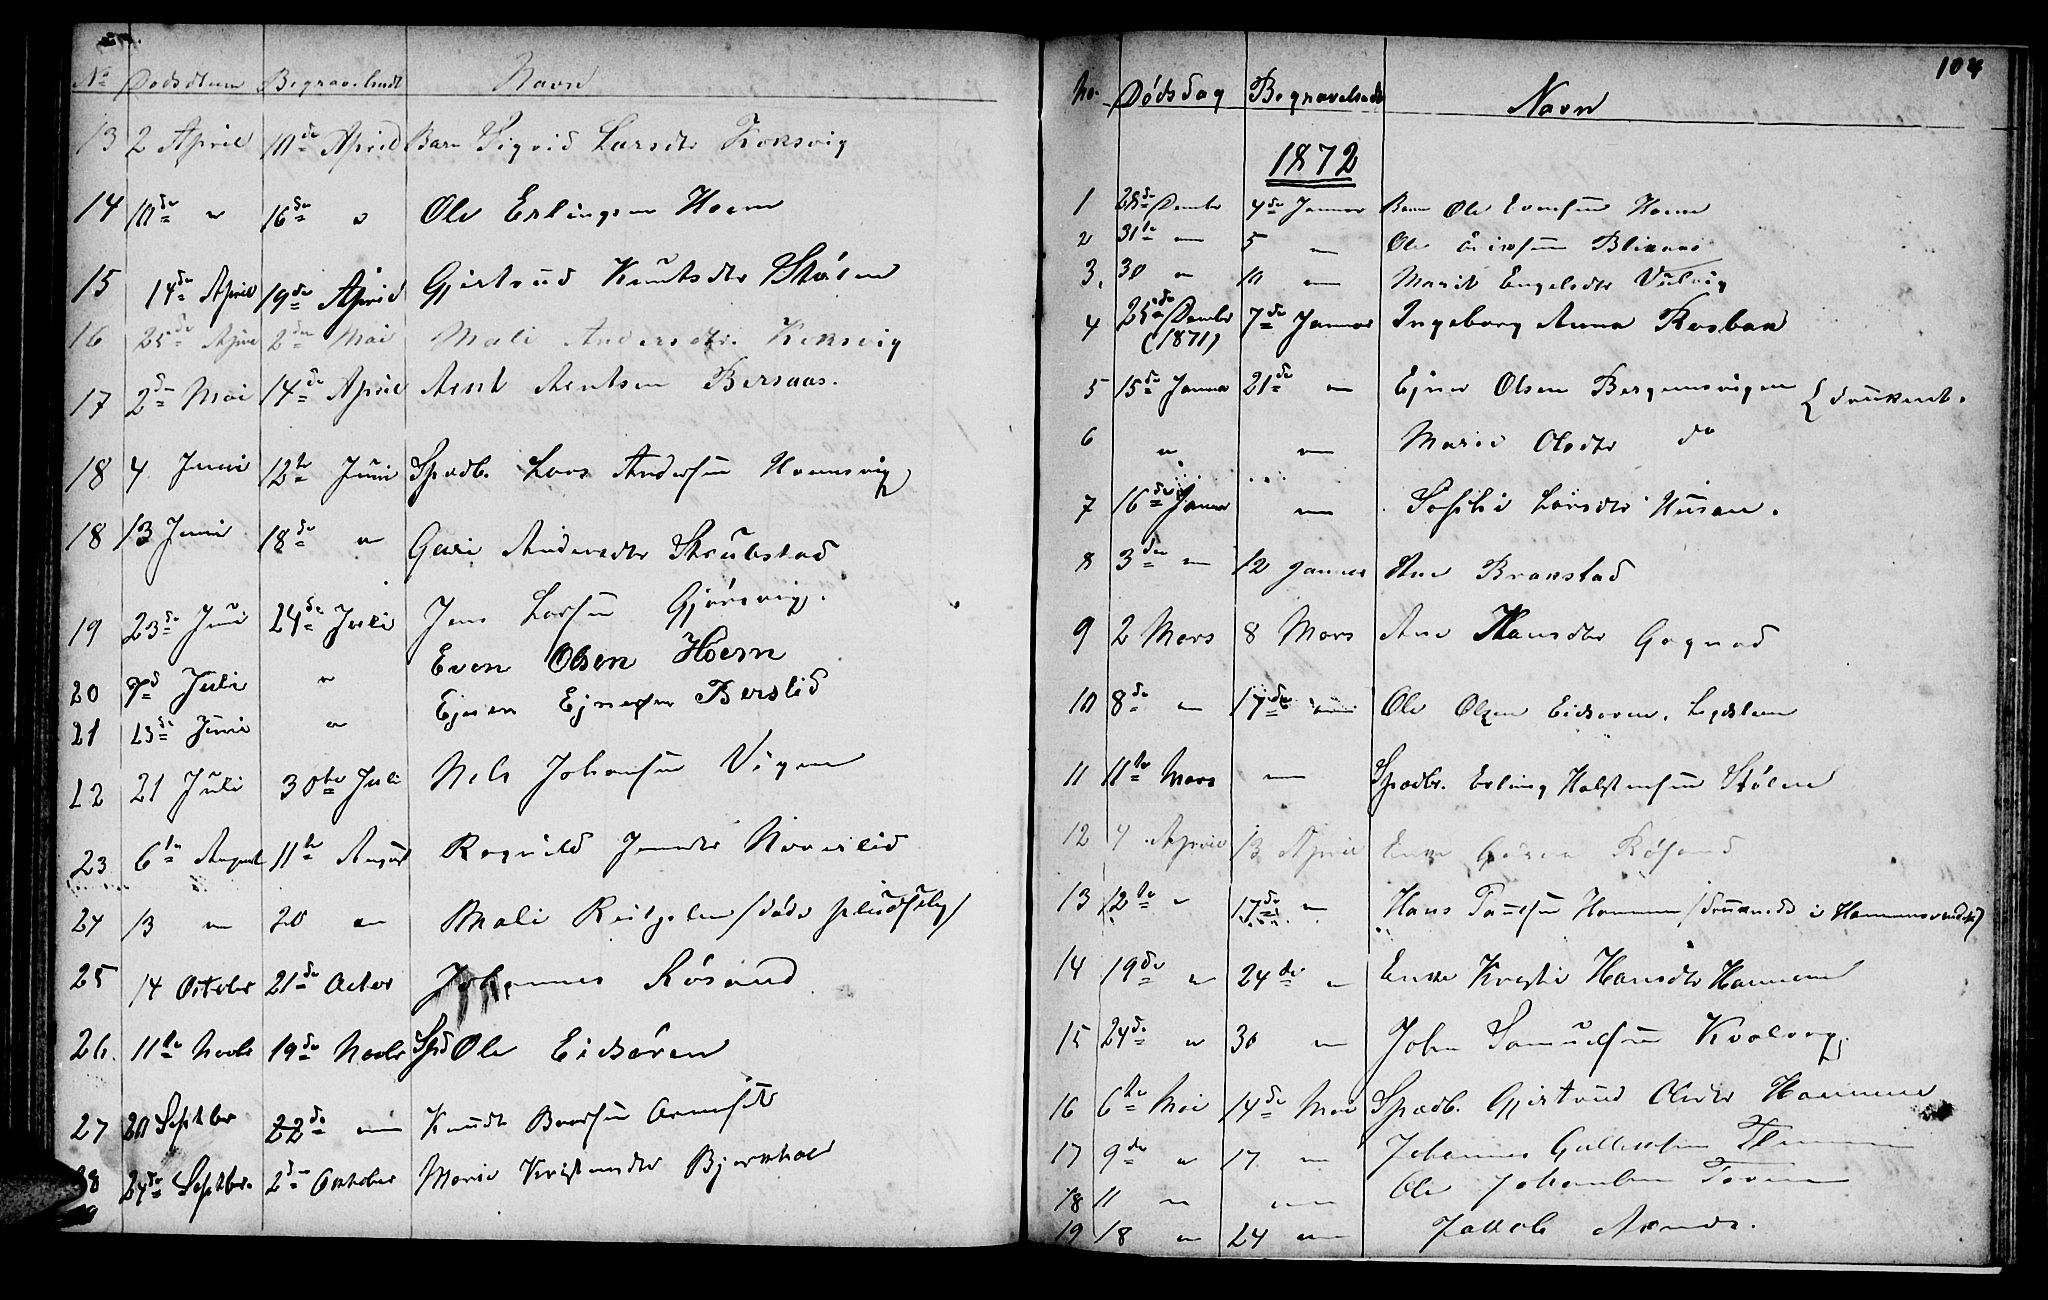 No Dødsdtum Begravelsesdt Navn
13 2 April 10de April Barn Sigrid Larsdtr Koksvig
14 10de " 16de " Ole Erlingsen Hoem
15 14de April 19de April Gjertrud Knutsdtr Stølen
16 25de April 2den Mai Mali Andersdtr. Koksvig
17 2den Mai 14de April Arnt Arntsen Bersaas.
18 4 Juni 12te Juni Spædb. Lars Andersen Hoemsvig
18 13 Juni 18de " Guri Andersdtr Strubstad
19 23de Juni 24de Juli Jens Larsen Gjøresvig.
20 7d Juli " Even Olsen Hoem
21 23de Juni " Ejnar Ejnarsen Berslid
22 21 Juli 30te Juli Nels Johansen Vigen
23 6te August 11te August Ragnild Jensdtr
24 13 " 20 " Mali /døde pludselig/
25 14 Octobr 21de Octor Johannes Røsand
26. 11te Novbr 19de Novbr Spd Ole Eidsøren
27 20 Septbr 22de " Knudt Baarsen
28 24de Septbr. 2den October Marie Kristensdtr Bjørnhoel
104
No. Dødsdag Begravelsesdt Navn
1872
1 28de Decmbr 4de Januar Barn Ole Evensen Hoem
2 31te " 5 " Ole Blikaas
3. 30 " 10 " Marit Engelsdtr Vulvig
4 25de Decmbr (1871) 7de Januar Ingeborg Anna Rosbak
5 15de Januar 21de " Ejner Olsen Bergemsvigen { druknet.
6 " " Marie Olsdtr do
7 16de Januar " Larsdtr
8 3den " 12 Januar Ane Brakstad
9 2 Mars 8 Mars Ane Hansdtr Gagnad
10 8de " 17de " Ole Olsen Eidsøren. Legdslem
11 11te Mars " Spædbr. Erling Halstensen Stølen
12 4 April 13 April Enke Røsand
13 12te " 17de " Hans Paulsen Hammen /druknede i
14 19de " 24de " Enke Kristi Hansdtr Hammen
15 24de " 30 " John Samuelsen Kvalvåg.
16 6te Mai 14de Mai Spædb. Gjertrud Olsdtr Hammen
17 9de " 17 " Johannes
18 11 " " Ole Johansen
19 18 " 24 " Jakob